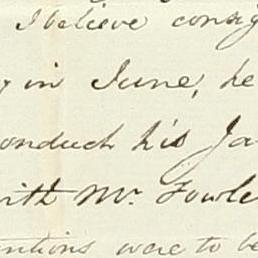 I believe consig
y in June, he
onduch his Ja
ith Mr. Fowle
entions were to be